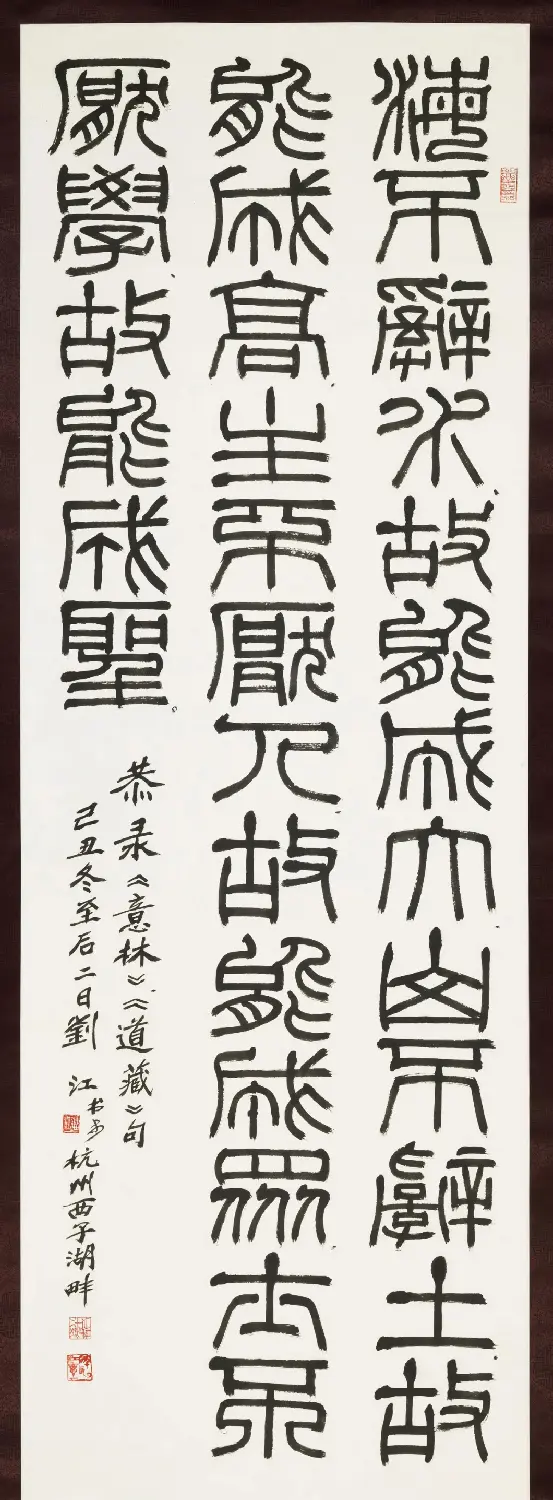 海不辭水故能成大山不辭土故
能成高主不厭人故能成眾士不
厭學故能成聖
恭录《意林》《道藏》句
己丑冬至后二日劉江书于杭州西子湖畔